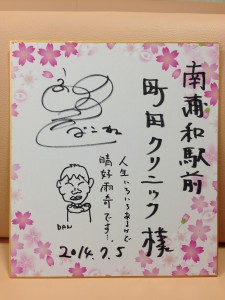 南浦和駅前
町田クリニック様
人生いろいろあるけど
晴好雨奇です!
DAN
2014.7.5